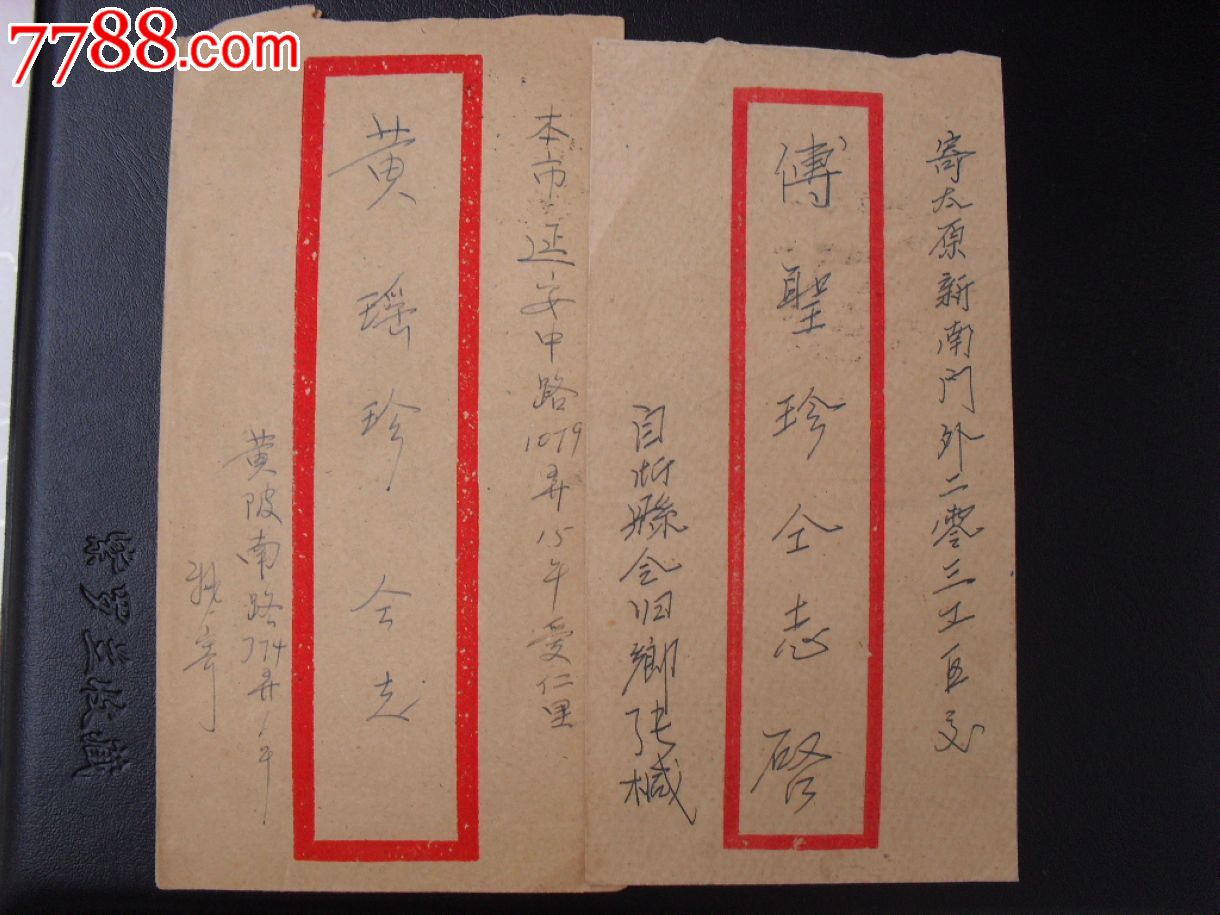 7788.com
寄太原新南门外二零三工区交
傅聖珍仝志啓
自忻縣令归鄉张椷
本市延安中路1079弄15号爱仁里
黄瑶珍会志
黄陂南路774弄1号
寄
收藏